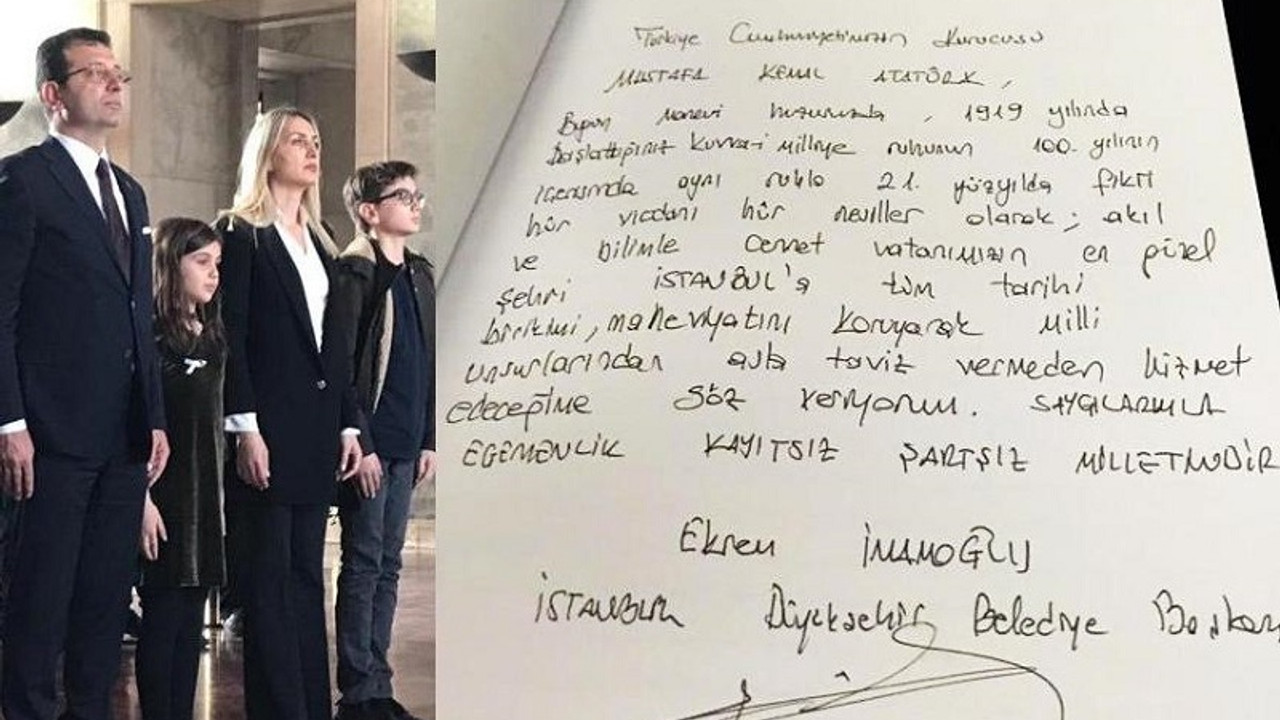 Türkiye Cumhuriyetimizin Kurucusu
MUSTAFA KEMAL ATATÜRK,
Bugün manevi huzurunuzda, 1919 yılında
başlattığınız Kuvva-i Milliye ruhunun 100. yılının
içerisinde aynı ruhla 21. yüzyılda fikri
hür vicdanı hür nesiller olarak; akıl
ve bilimle cennet vatanımızın en güzel
şehri İSTANBUL'a tüm tarihi
birikimi, maneviyatını koruyarak Milli
unsurlarından asla taviz vermeden hizmet
edeceğime söz veriyorum. SAYGILARIMLA
EGEMENLİK KAYITSIZ ŞARTSIZ MİLLETİNDİR
Ekrem İMAMOĞLU
İSTANBUL Büyükşehir Belediye Başkanı